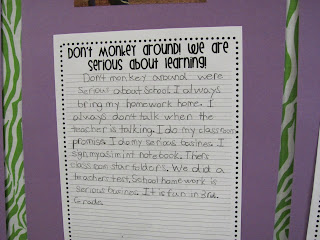 Don't Monkey around! We are
serious about learning!
Don't monkey around were
serious about school. I always
bring my homework home. I
always don't talk when the
teacher is talking. I do my classroom
promiss. I do my serious busines. I
sign my
notebook. Thers
class room star folders. We did a
teachers test. School home work is
serious busines. It is fun in 3rd
Grade.